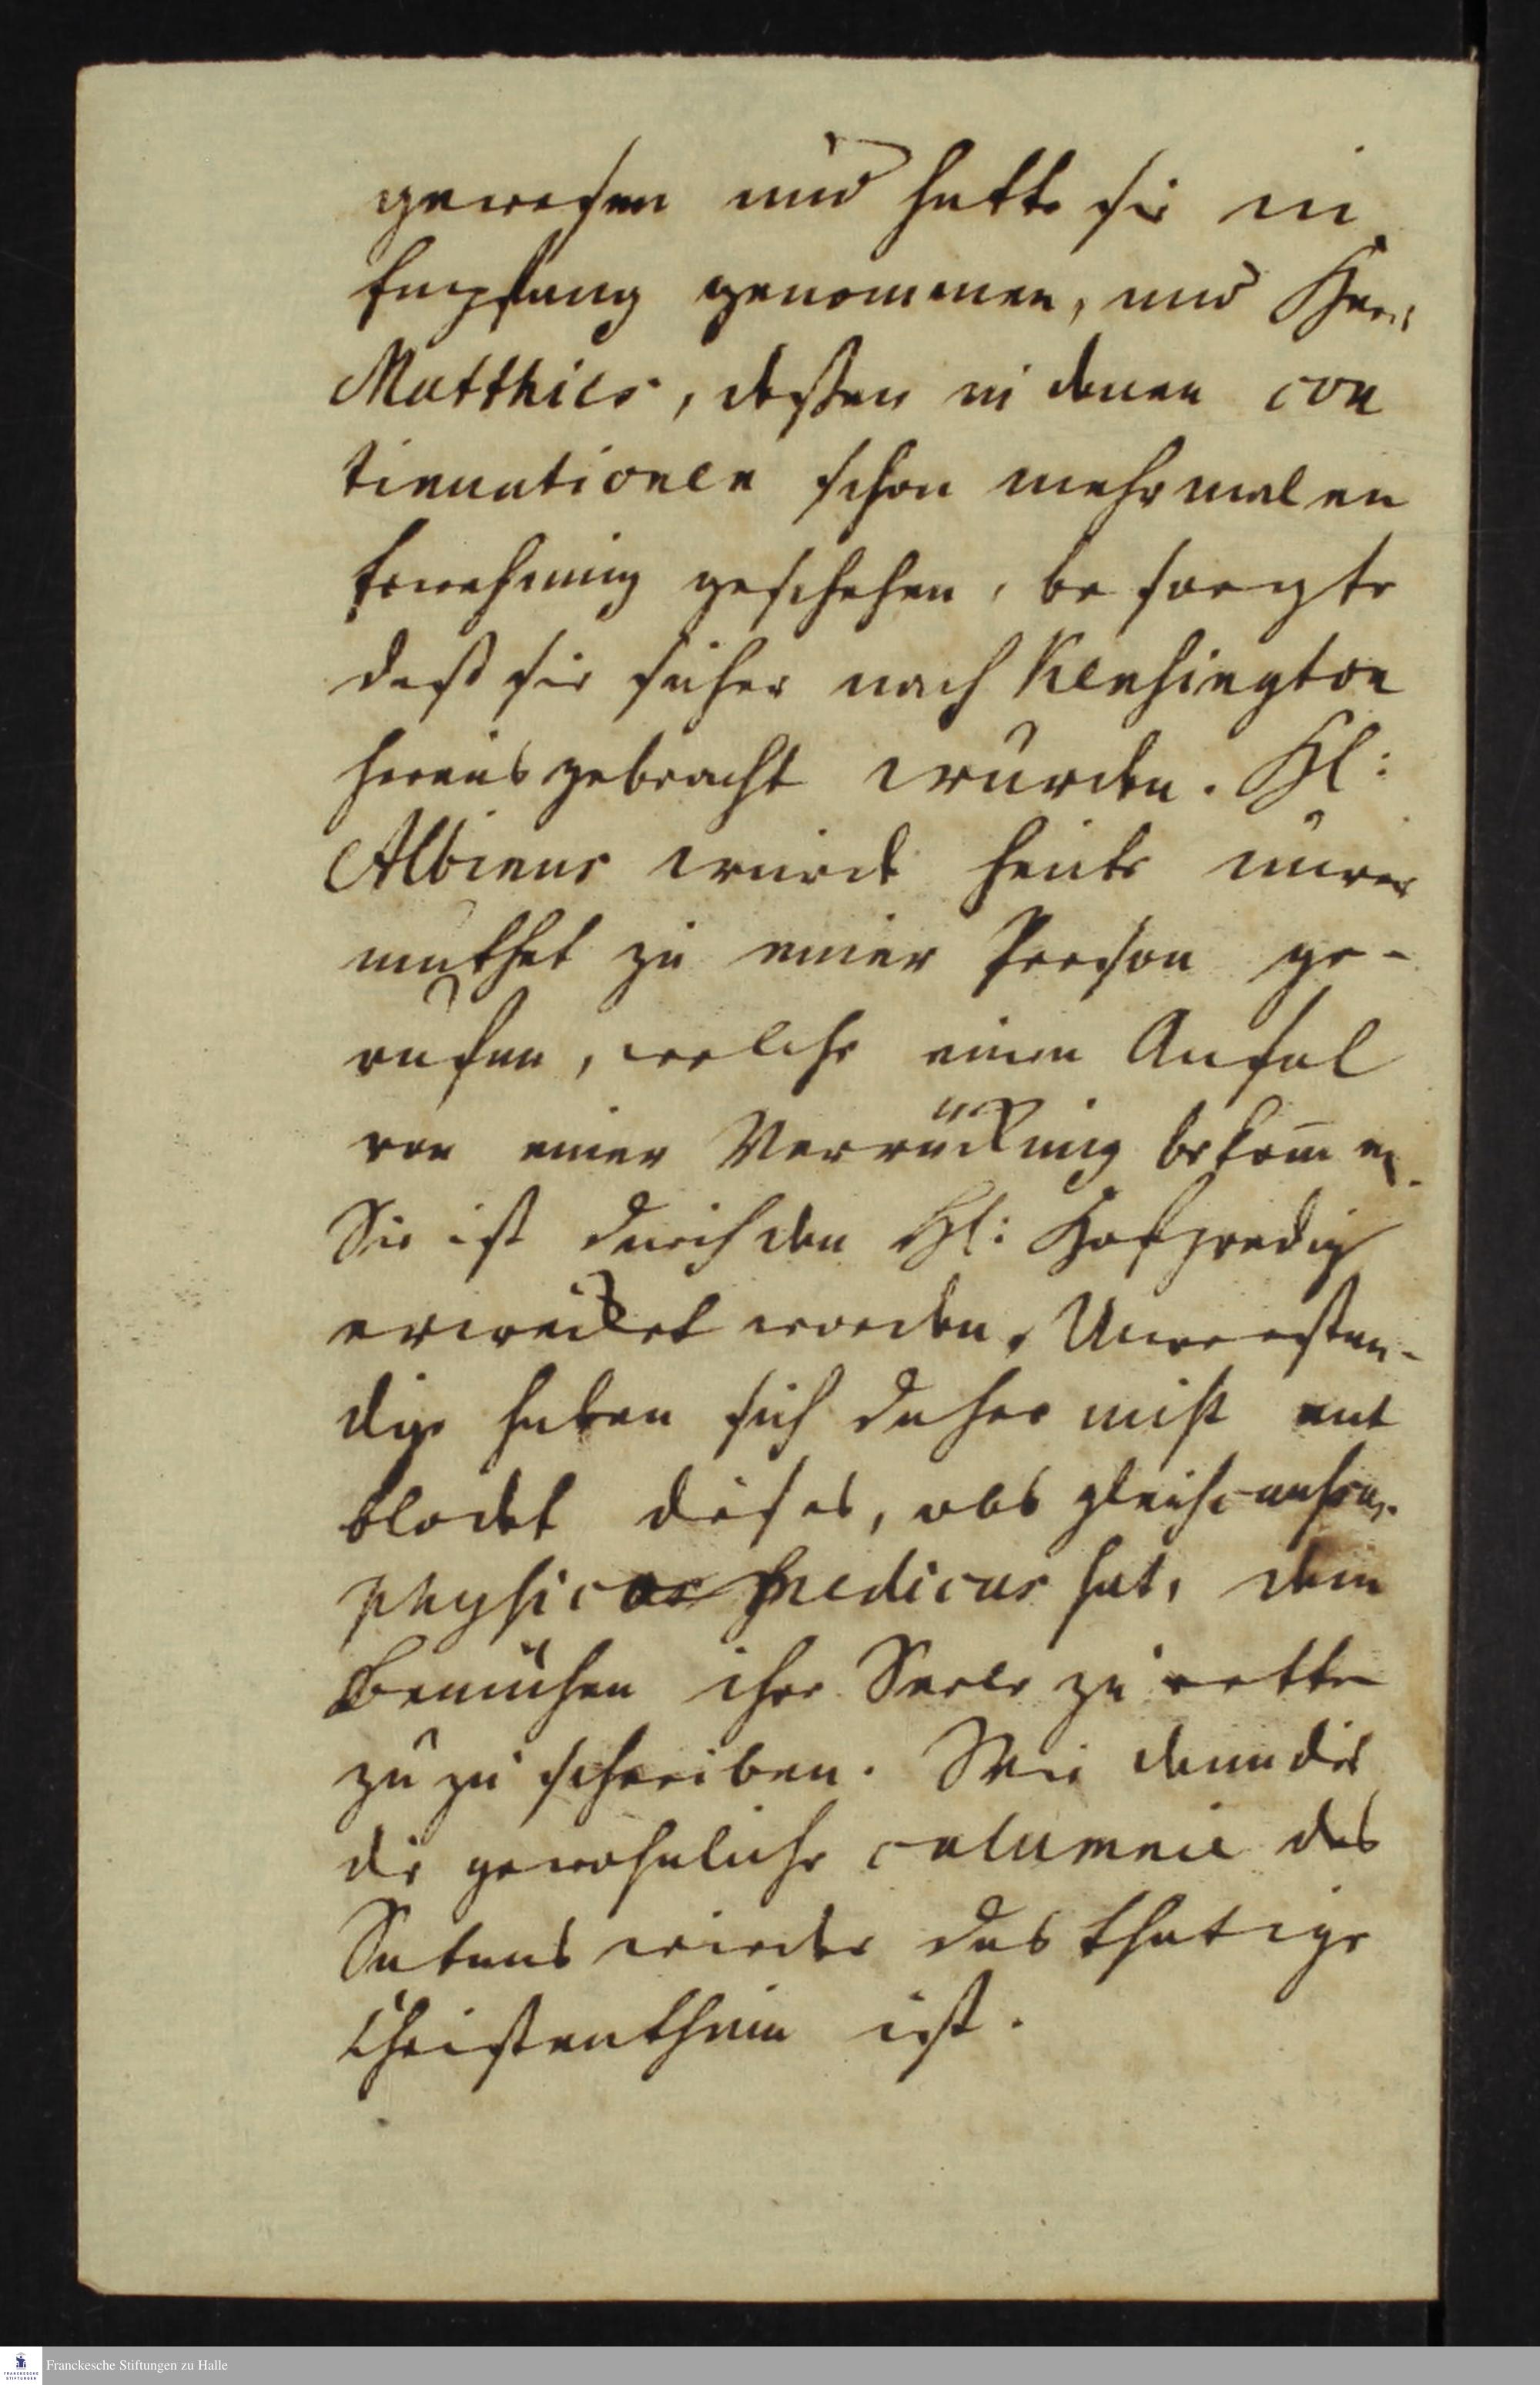 gewesen und hatte sie in
Empfang genommen, und Herr
Matthies, dessen in denen con
tinuationen schon mehrmalen
Erwehnung geschehen, be sorgte
daß sie sicher nach Kensington
heraus gebracht wurden. HE:
Albinus wurde heute unver
muthet zu einer Person ge-
rufen, welche einen Anfal
von einer Verrückung bekommen.
Sie ist durch den HE: Hofpredig
erwecket worden. Unverstän-
dige haben sich daher nicht ent
blödet dieses, obs gleich causas
physicas medicus hat, dem
Bemühen ihre Seele zu retten
zu zu schreiben. Wie denn dis
die gewohnliche calumnie des
Satans wieder das thätige
Christenthum ist.
Franckesche Stiftungen zu Halle